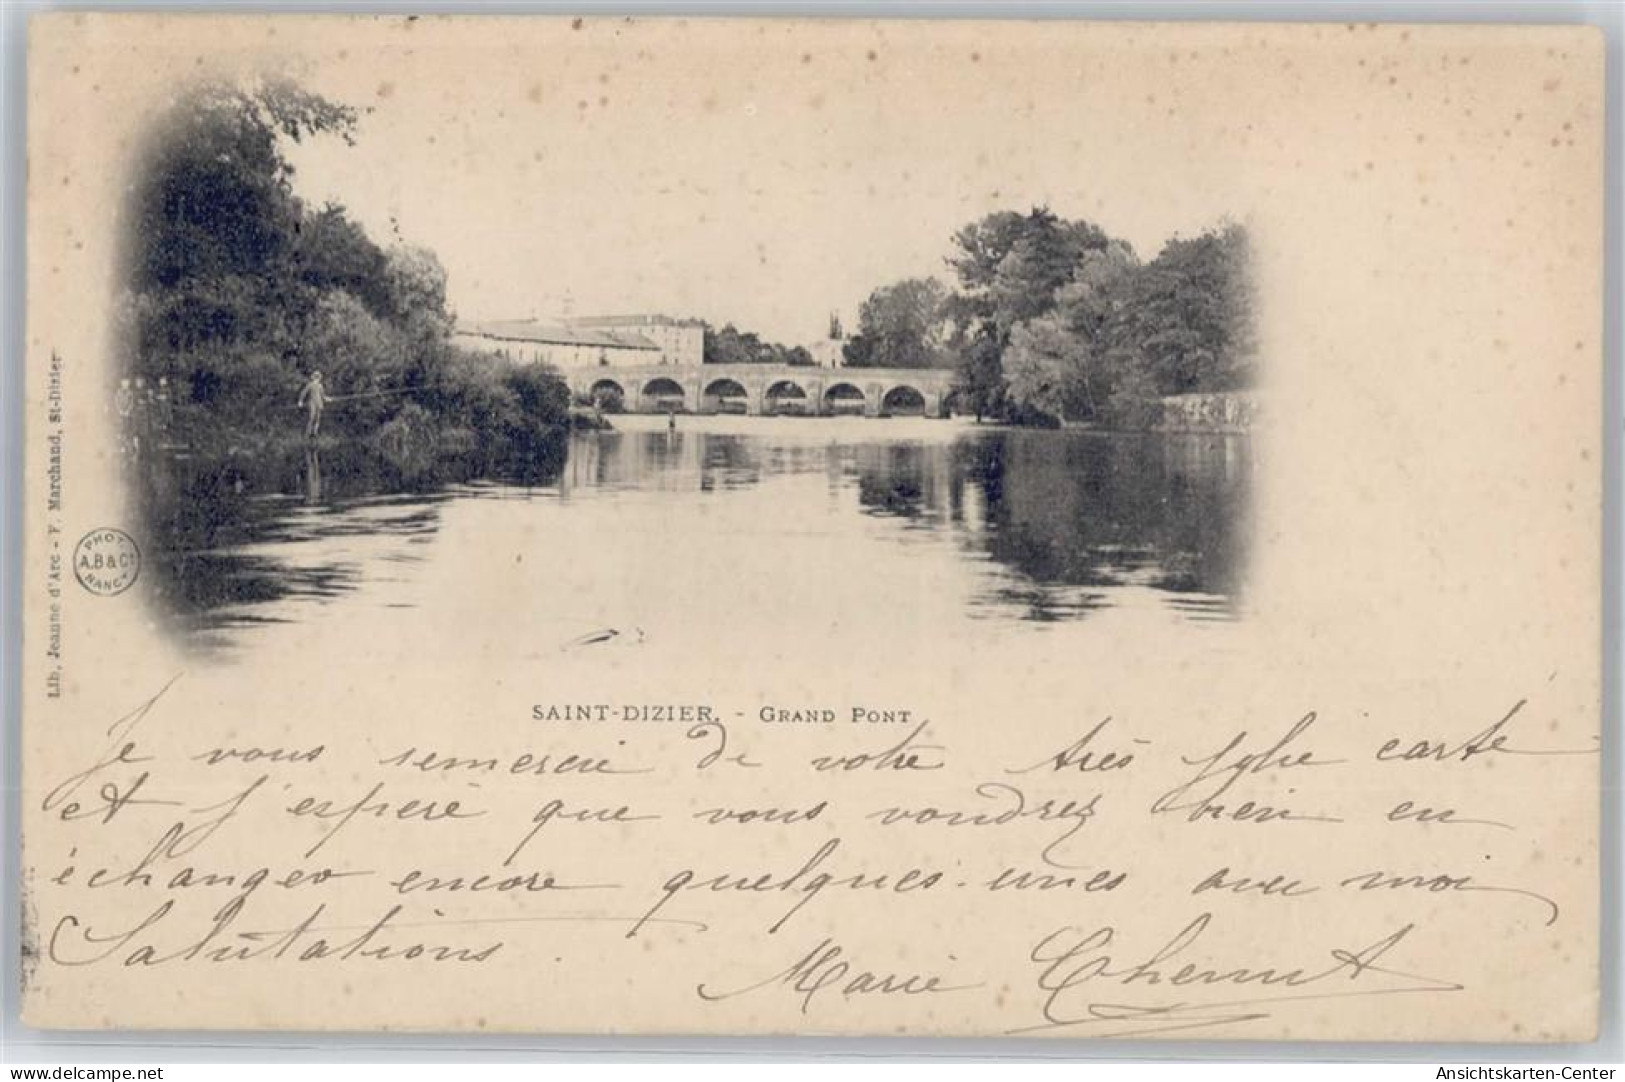 Lib. Jeanne d'Arc - F. Marchand, St-Dizier
PHOT.
A.B & Cie
NANCY
SAINT-DIZIER. - GRAND PONT
Je vous remercie de votre très jolie carte
et j'espère que vous voudrez bien en
échanger encore quelques-unes avec moi
Salutations.
Marie
delcampe.net
Ansichtskarten-Center